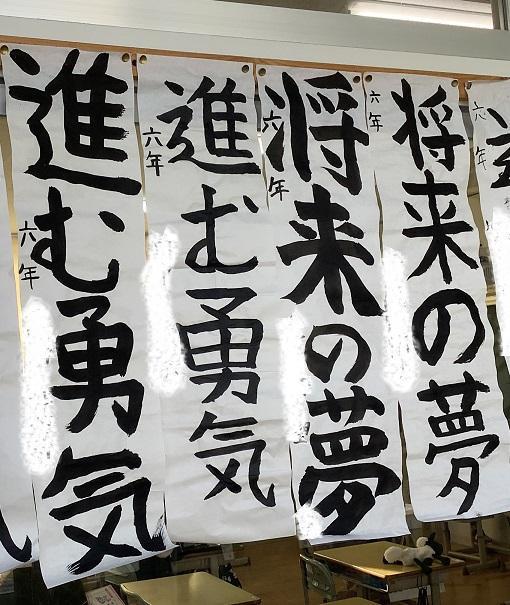 将来の夢
六年
将来の夢
六年
進む勇気
六年
進む勇気
六年